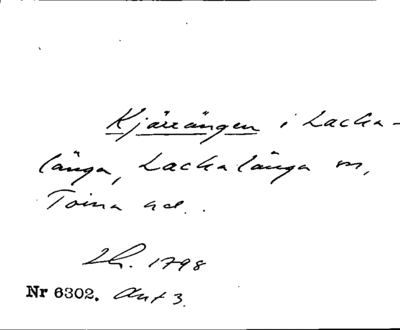 Kjärrängen i Lacka-
länga, Lackalänga sn,
Torna hd.
Lh. 1798
Nr 6302. Akt 3.